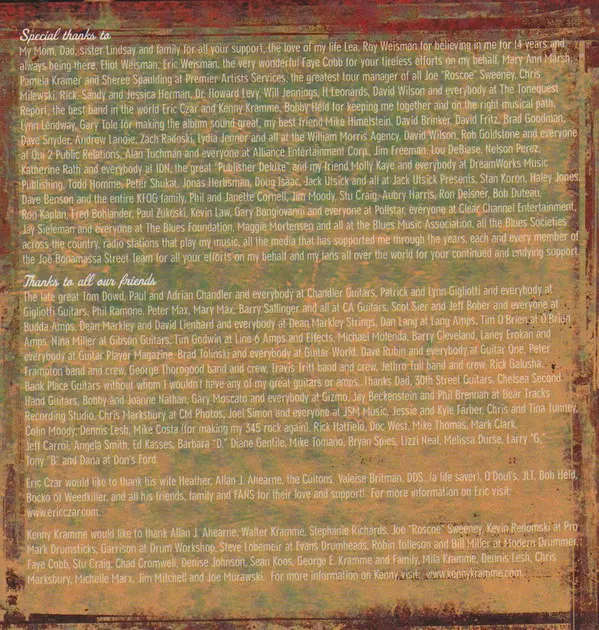 Special thanks to
My Mom, Dad, sister Lindsay and family for all your support, the love of my life Lea, Roy Weisman for believing in me for 14 years and
always being there, Eliot Weisman, Eric Weisman, the very wonderful Faye Cobb for your tireless efforts on my behalf, Mary Ann Marsh,
Pamela Kramer and Sheree Spaulding at Premier Artists Services, the greatest tour manager of all Joe "Roscoe" Sweeney, Chris
Milewski, Rick, Sandy and Jessica Herman, Dr. Howard Levy, Will Jennings, II Leonards, David Wilson and everybody at The Tonequest
Report, the best band in the world Eric Czar and Kenny Kramme, Bobby Held for keeping me together and on the right musical path,
Lynn Lendway, Gary Tole for making the album sound great, my best friend Mike Himelstein, David Brinker, David Fritz, Brad Goodman,
Dave Snyder, Andrew Langie, Zach Radoski, Lydia Jenner and all at the William Morris Agency, David Wilson, Rob Goldstone and everyone
at Oui 2 Public Relations, Alan Tuchman and everyone at Alliance Entertainment Corp., Jim Freeman, Lou DeBiase, Nelson Perez,
Katherine Rath and everybody at IDN, the great "Publisher Deluxe" and my friend Molly Kaye and everybody at DreamWorks Music
Publishing, Todd Homme, Peter Shukat, Jonas Herbsman, Doug Isaac, Jack Utsick and all at Jack Utsick Presents, Stan Koron, Haley Jones,
Dave Benson and the entire KFOG family, Phil and Janette Cornell, Jim Moody, Stu Craig, Aubry Harris, Ron Deisner, Bob Duteau,
Ron Kaplan, Fred Bohlander, Paul Zukoski, Kevin Law, Gary Bongiovanni and everyone at Pollstar, everyone at Clear Channel Entertainment,
Jay Sieleman and everyone at The Blues Foundation, Maggie Mortensen and all at the Blues Music Association, all the Blues Societies
across the country, radio stations that play my music, all the media that has supported me through the years, each and every member of
the Joe Bonamassa Street Team for all your efforts on my behalf and my fans all over the world for your continued and undying support.
Thanks to all our friends
The late great Tom Dowd, Paul and Adrian Chandler and everybody at Chandler Guitars, Patrick and Lynn Gigliotti and everybody at
Gigliotti Guitars, Phil Ramone, Peter Max, Mary Max, Barry Salinger and all at CA Guitars, Scot Sier and Jeff Bober and everyone at
Budda Amps, Dean Markley and David Lienhard and everybody at Dean Markley Strings, Dan Lang at Lang Amps, Tim O'Brien at O'Brien
Amps, Nina Miller at Gibson Guitars, Tim Godwin at Line 6 Amps and Effects, Michael Molenda, Barry Cleveland, Laney Erokan and
everybody at Guitar Player Magazine, Brad Tolinski and everybody at Guitar World, Dave Rubin and everybody at Guitar One, Peter
Frampton band and crew, George Thorogood band and crew, Travis Tritt band and crew, Jethro Tull band and crew, Rick Galusha,
Bank Place Guitars without whom I wouldn't have any of my great guitars or amps. Thanks Dad, 30th Street Guitars, Chelsea Second
Hand Guitars, Bobby and Joanne Nathan, Gary Moscato and everybody at Gizmo, Jay Beckenstein and Phil Brennan at Bear Tracks
Recording Studio, Chris Marksbury at CM Photos, Joel Simon and everyone at JSM Music, Jessie and Kyle Farber, Chris and Tina Tunney,
Colin Moody, Dennis Lesh, Mike Costa (for making my 345 rock again), Rick Hatfield, Doc West, Mike Thomas, Mark Clark,
Jeff Carroi, Angela Smith, Ed Kasses, Barbara "D," Diane Gentile, Mike Tomano, Bryan Spies, Lizzi Neal, Melissa Durse, Larry "G,"
Tony "B" and Dana at Don's Ford.
Eric Czar would like to thank his wife Heather, Allan J. Ahearne, the Cultons, Valeise Britman, DDS. (a life saver), O'Doul's, JLT, Bob Held,
Bocko of Weedkiller, and all his friends, family and FANS for their love and support! For more information on Eric visit:
www.ericczar.com.
Kenny Kramme would like to thank Allan J. Ahearne, Walter Kramme, Stephanie Richards, Joe "Roscoe" Sweeney, Kevin Radomski at Pro
Mark Drumsticks, Garrison at Drum Workshop, Steve Lobemeir at Evans Drumheads, Robin Tolleson and Bill Miller at Modern Drummer,
Faye Cobb, Stu Craig, Chad Cromwell, Denise Johnson, Sean Koos, George E. Kramme and Family, Mila Kramme, Dennis Lesh, Chris
Marksbury, Michelle Marx, Jim Mitchell and Joe Murawski. For more information on Kenny visit: www.kennykramme.com.